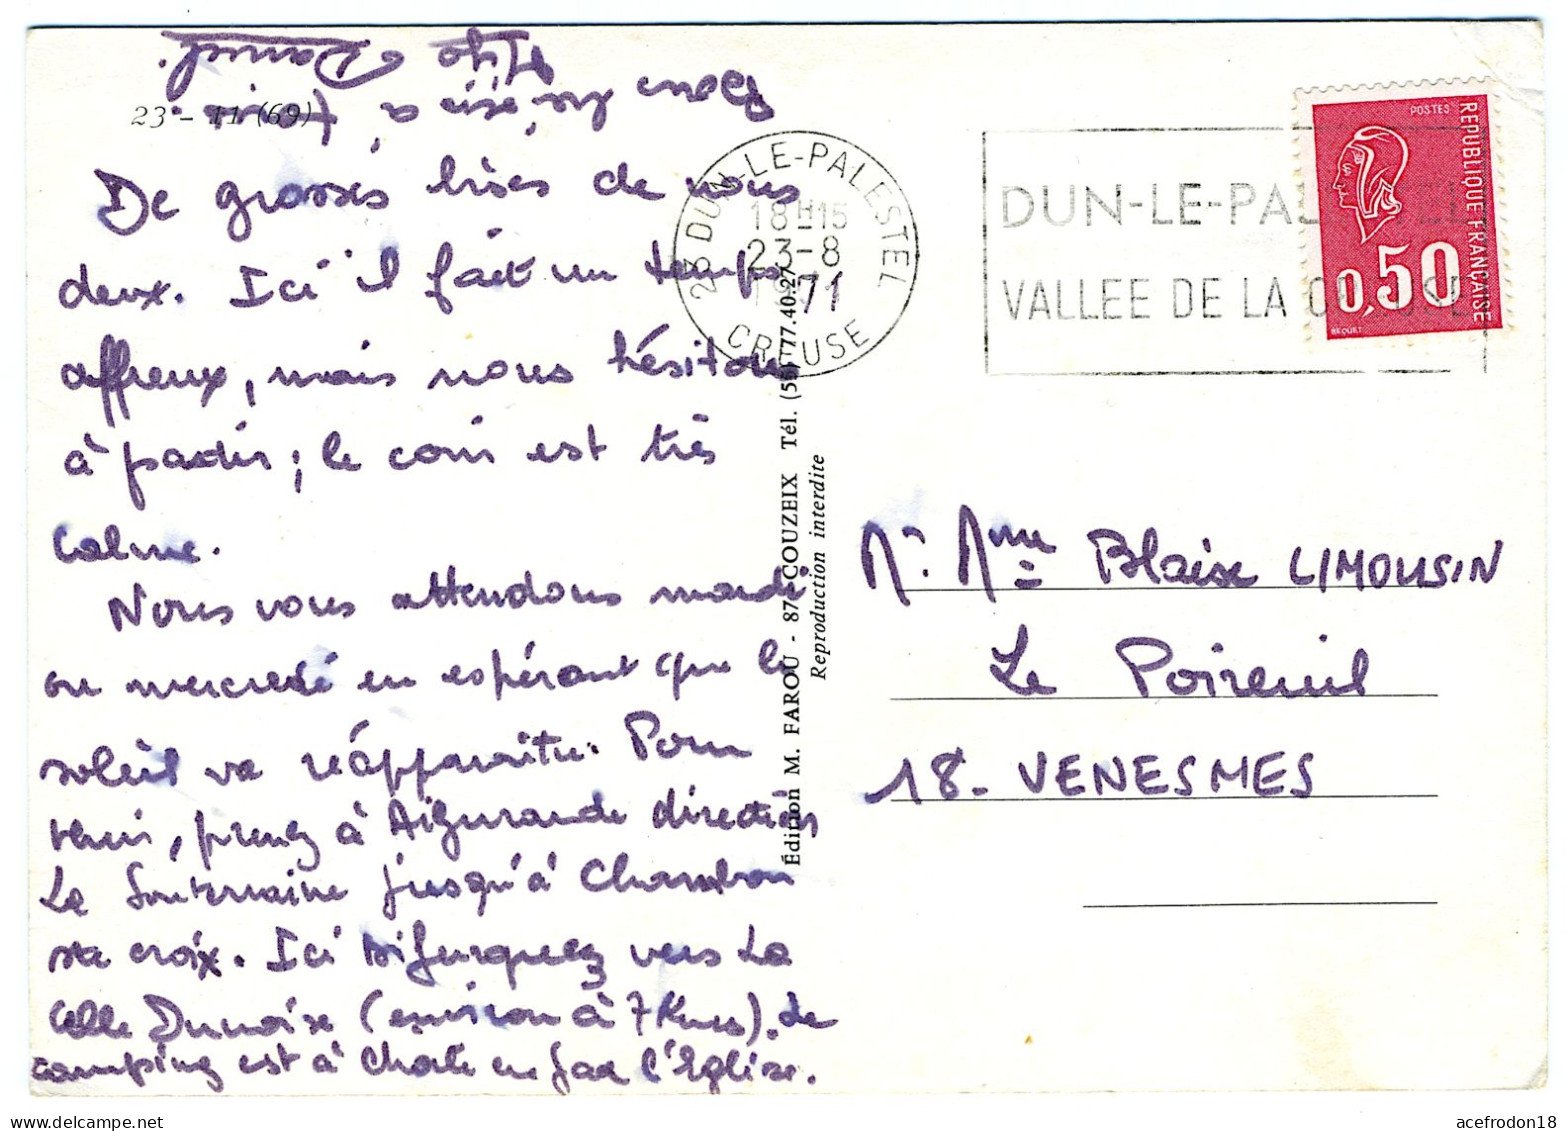 23 - 11 (69)
De grosses bises de nous
deux. Ici il fait un temps
affreux, mais nous hésitons
à partir ; le coin est très
calme.
Nous vous attendons mardi
ou mercredi en espérant que le
soleil va réapparaître. Pour
venir, prenez à Aigurande direction
La Souterraine jusqu'à Chambon
ste croix. Ici bifurquez vers La
Celle Dunoise (environ à 7 Kms). Le
camping est à Côté en face l'Eglise.
Bons baisers à tous.
Daniel.
Édition M. FAROU - 87-COUZEIX Tél. (55) 77.40.27
Reproduction interdite
23 DUN-LE-PALESTEL
18H15
23-8
1971
CREUSE
DUN-LE-PALESTEL
VALLEE DE LA CREUSE
POSTES
REPUBLIQUE FRANÇAISE
0,50
BEQUET
Mr. Mme Blaise LIMOUSIN
Le Poireuil
18- VENESMES
acefrodon18